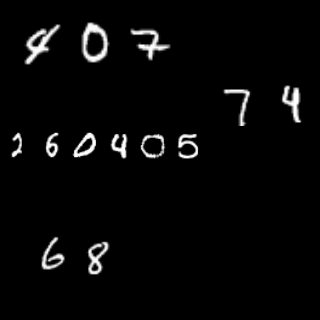 407
74
260405
68